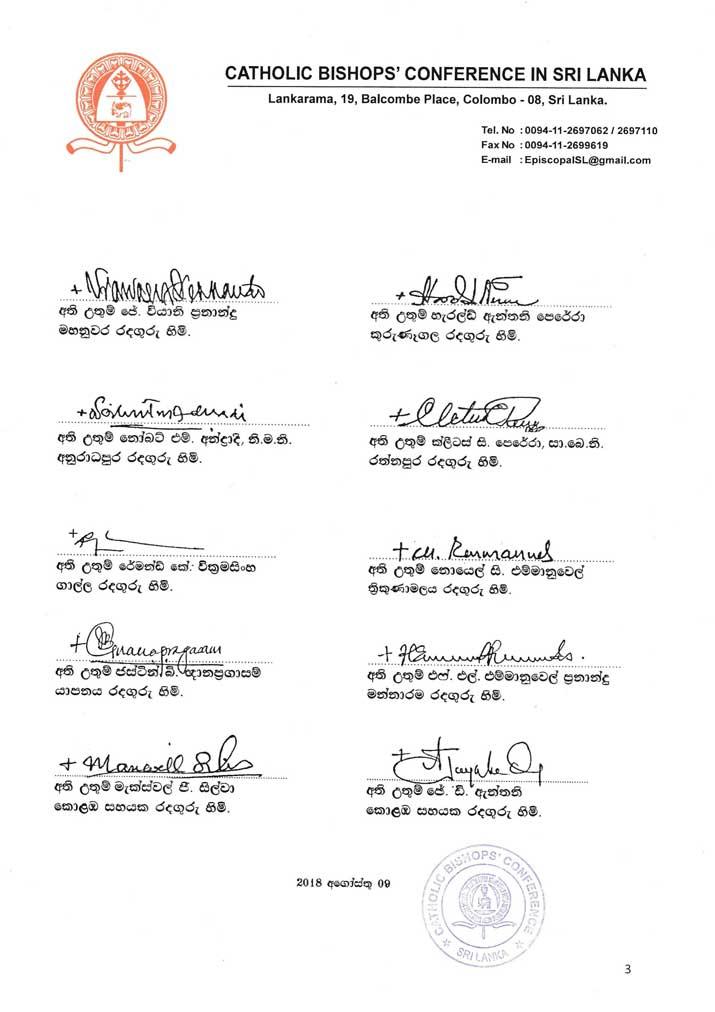 CATHOLIC BISHOPS' CONFERENCE IN SRI LANKA
Lankarama, 19, Balcombe Place, Colombo - 08, Sri Lanka.
Tel. No : 0094-11-2697062 / 2697110
Fax No : 0094-11-2699619
E-mail : EpiscopalSL@gmail.com
අති උතුම් ජේ. වියානි ප්‍රනාන්දු
මහනුවර රදගුරු හිමි.
අති උතුම් හැරල්ඩ් ඇන්තනි පෙරේරා
කුරුණෑගල රදගුරු හිමි.
අති උතුම් නෝබට් එම්. අන්ද්‍රාදි, නි.ම.නි.
අනුරාධපුර රදගුරු හිමි.
අති උතුම් ක්ලීටස් සී. පෙරේරා, සා.බෙ.නි.
රත්නපුර රදගුරු හිමි.
අති උතුම් රේමන්ඩ් කේ. වික්‍රමසිංහ
ගාල්ල රදගුරු හිමි.
අති උතුම් නොයෙල් සී. එම්මානුවෙල්
ත්‍රිකුණාමලය රදගුරු හිමි.
අති උතුම් ජස්ටින් බී. ඥානප්‍රගාසම්
යාපනය රදගුරු හිමි.
අති උතුම් එෆ්. එල්. එම්මානුවෙල් ප්‍රනාන්දු
මන්නාරම රදගුරු හිමි.
අති උතුම් මැක්ස්වල් ජී. සිල්වා
කොළඹ සහයක රදගුරු හිමි.
අති උතුම් ජේ. ඩී. ඇන්තනි
කොළඹ සහයක රදගුරු හිමි.
2018 අගෝස්තු 09
CATHOLIC BISHOPS' CONFERENCE
SRI LANKA
3